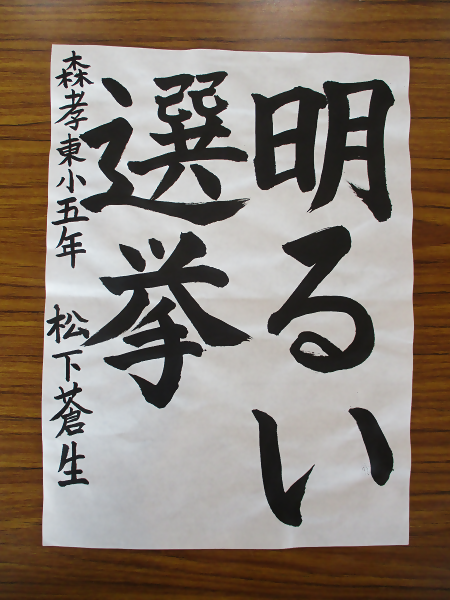 明るい
選挙
森孝東小五年 松下蒼生